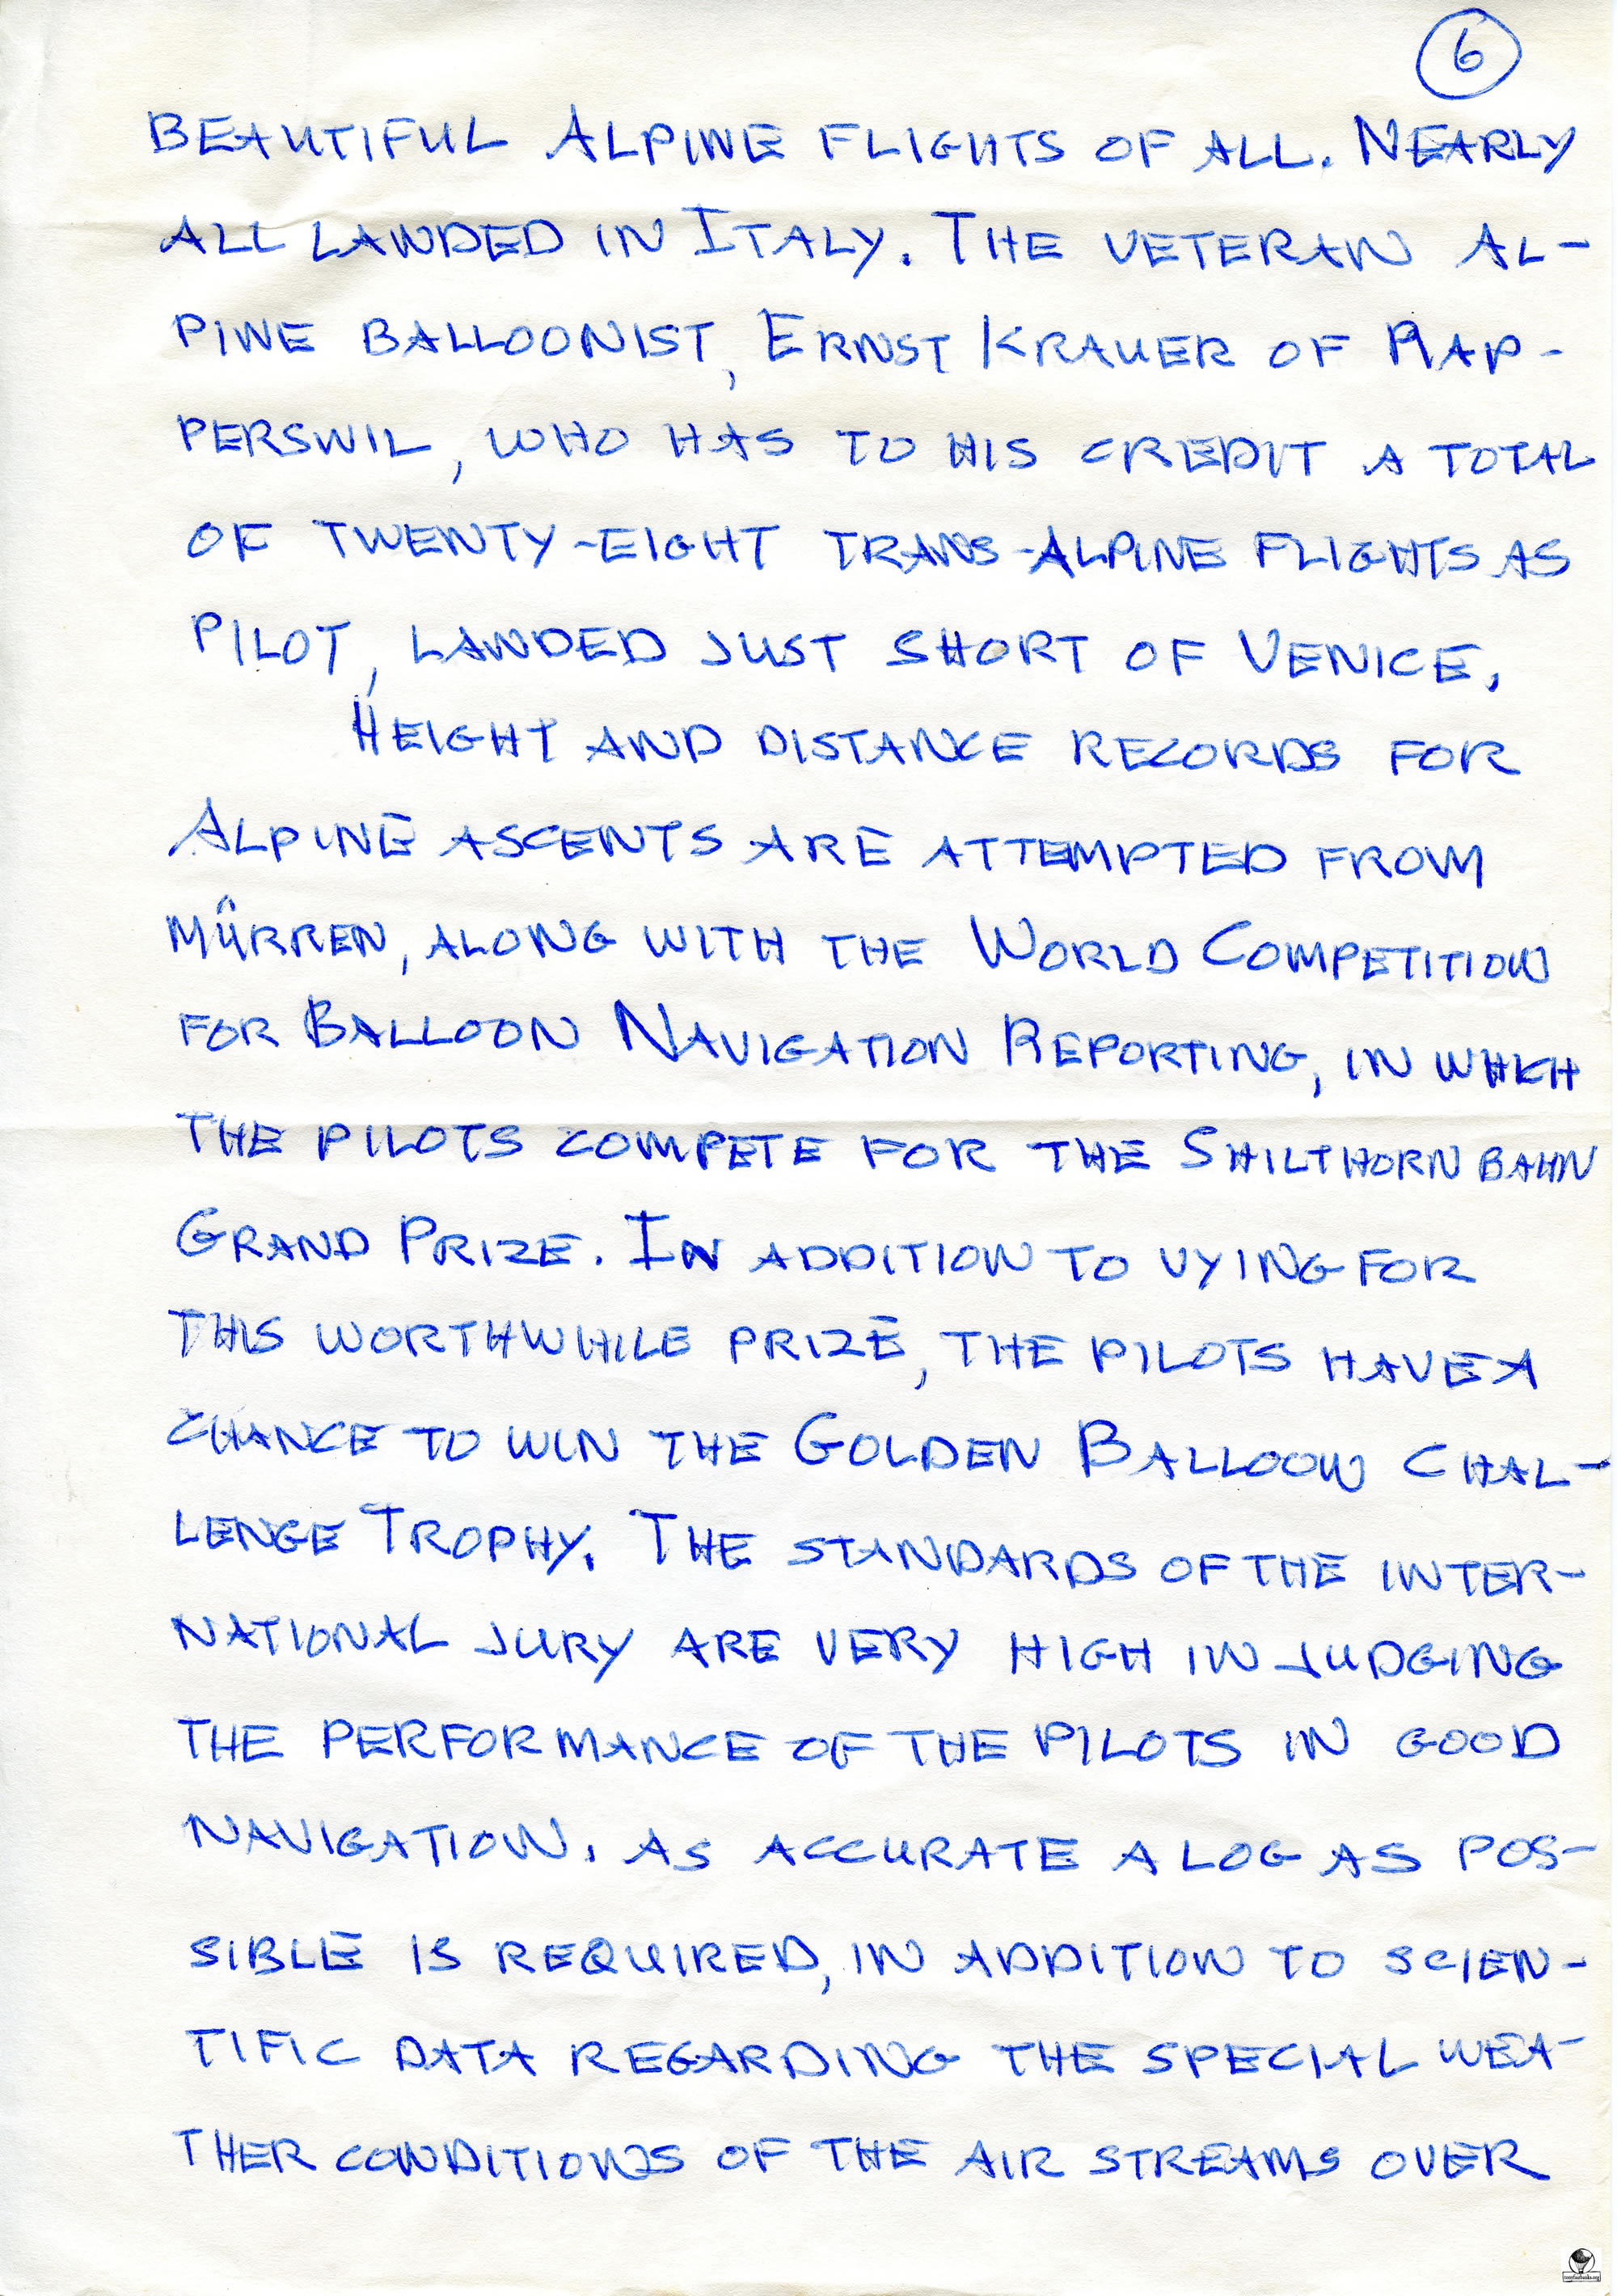 6
BEAUTIFUL ALPINE FLIGHTS OF ALL. NEARLY
ALL LANDED IN ITALY. THE VETERAN AL-
PINE BALLOONIST, ERNST KRAUER OF RAP-
PERSWIL, WHO HAS TO HIS CREDIT A TOTAL
OF TWENTY-EIGHT TRANS-ALPINE FLIGHTS AS
PILOT, LANDED JUST SHORT OF VENICE.
HEIGHT AND DISTANCE RECORDS FOR
ALPINE ASCENTS ARE ATTEMPTED FROM
MÜRREN, ALONG WITH THE WORLD COMPETITION
FOR BALLOON NAVIGATION REPORTING, IN WHICH
THE PILOTS COMPETE FOR THE SHILTHORNBAHN
GRAND PRIZE. IN ADDITION TO VYING FOR
THIS WORTHWHILE PRIZE, THE PILOTS HAVE A
CHANCE TO WIN THE GOLDEN BALLOON CHAL-
LENGE TROPHY. THE STANDARDS OF THE INTER-
NATIONAL JURY ARE VERY HIGH IN JUDGING
THE PERFORMANCE OF THE PILOTS IN GOOD
NAVIGATION. AS ACCURATE A LOG AS POS-
SIBLE IS REQUIRED, IN ADDITION TO SCIEN-
TIFIC DATA REGARDING THE SPECIAL WEA-
THER CONDITIONS OF THE AIR STREAMS OVER